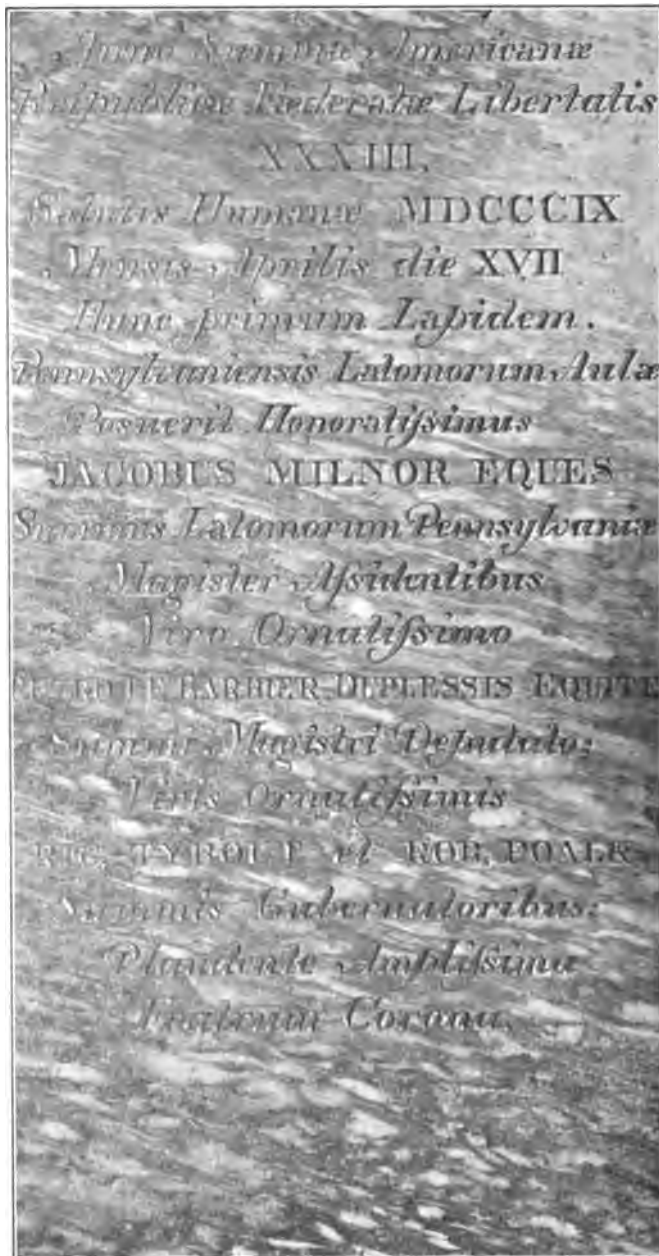 Anno Summæ Americanæ
Reipublicæ Federatæ Libertatis
XXXIII.
Salutis Humanæ MDCCCIX
Mensis Aprilis die XVII
Hunc primum Lapidem.
Pennsylvaniensis Latomorum Aulæ
Posuerit Honoratiſsimus
JACOBUS MILNOR EQUES
Summus Latomorum Pennsylvaniæ
Magister Aſsidentibus
Viro Ornatiſsimo
PETRO LE BARBIER-DEPLESSIS EQUITE
Summi Magistri Deputato:
Viris Ornatiſsimis
RIC. TYBOUT et ROB. POALK
Summis Gubernatoribus:
Plaudente Ampliſsima
Fratrum Corona.